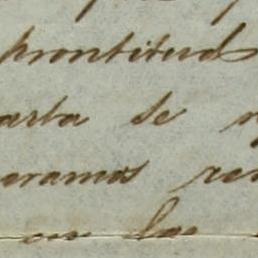 prontitud
arta se
eramos re
en las